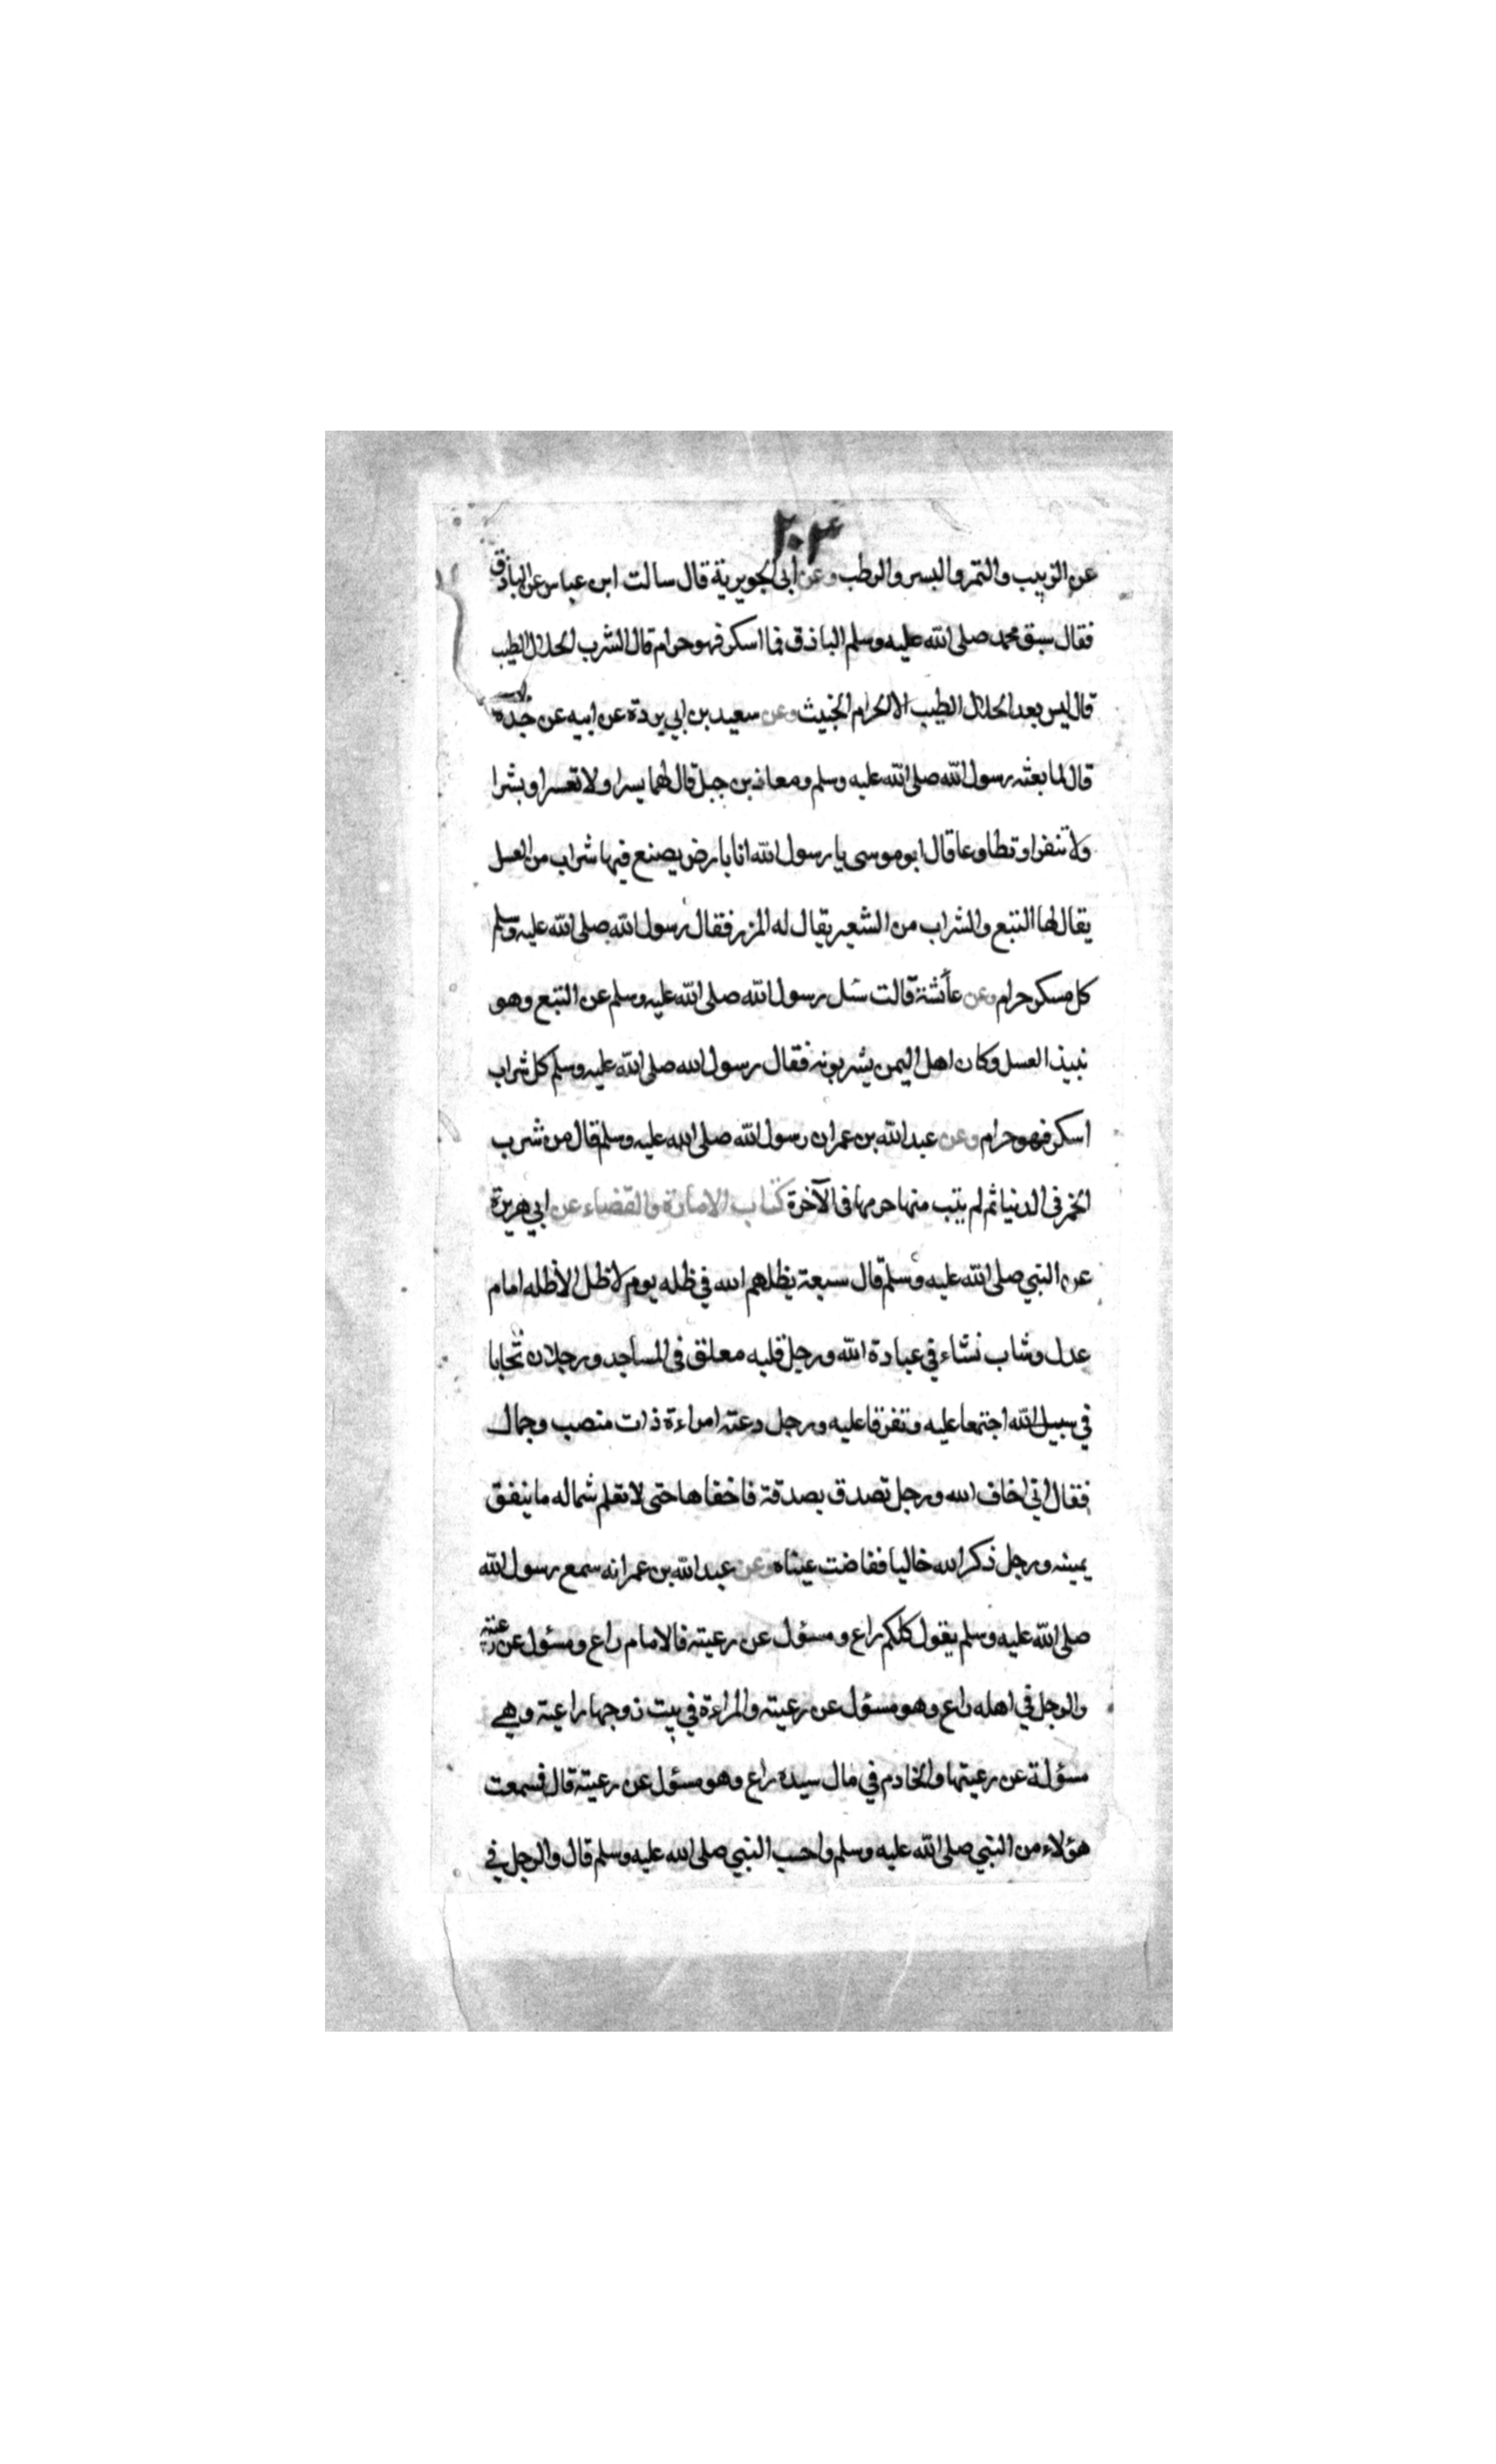 ٢٠٣
عن الزبيب والتمر والبسر والرطب وعن ابي الجويرية قال سالت ابن عباس عن الباذق
فقال سبق محمد صلى الله عليه وسلم الباذق فما اسكر فهو حرام قال الشرب الحلال الطيب
قال ليس بعد الحلال الطيب الا الحرام الخبيث وعن سعيد بن ابي بردة عن ابيه عن جده
قال لما بعثه رسول الله صلى الله عليه وسلم ومعاذ بن جبل قال لهما يسرا ولا تعسرا وبشرا
ولا تنفرا وتطاوعا قال ابو موسى يا رسول الله انا بارض يصنع فيها شراب من العسل
يقال لها التبع والشراب من الشعير يقال له المزر فقال رسول الله صلى الله عليه وسلم
كل مسكر حرام وعن عائشة قالت سئل رسول الله صلى الله عليه وسلم عن التبع وهو
نبيذ العسل وكان اهل اليمن يشربونه فقال رسول الله صلى الله عليه وسلم كل شراب
اسكر فهو حرام وعن عبد الله بن عمر ان رسول الله صلى الله عليه وسلم قال من شرب
الخمر في الدنيا ثم لم يتب منها حرمها في الآخرة كتاب الامارة والقضاء عن ابي هريرة
عن النبي صلى الله عليه وسلم قال سبعة يظلهم الله في ظله يوم لا ظل الا ظله امام
عدل وشاب نشاء في عبادة الله ورجل قلبه معلق في المساجد ورجلان تحابا
في سبيل الله اجتمعا عليه وتفرقا عليه ورجل دعته امراءة ذات منصب وجمال
فقال اني اخاف الله ورجل تصدق بصدقة فاخفاها حتى لا تعلم شماله ما ينفق
يمينه ورجل ذكر الله خاليا ففاضت عيناه وعن عبد الله بن عمر انه سمع رسول الله
صلى الله عليه وسلم يقول كلكم راع ومسؤل عن رعيته فالامام راع ومسؤل عن رعيته
والرجل في اهله راع وهو مسؤل عن رعيته والمراءة في بيت زوجها راعية وهي
مسؤلة عن رعيتها والخادم في مال سيده راع وهو مسؤل عن رعيته قال فسمعت
هؤلاء من النبي صلى الله عليه وسلم واحسب النبي صلى الله عليه وسلم قال والرجل في